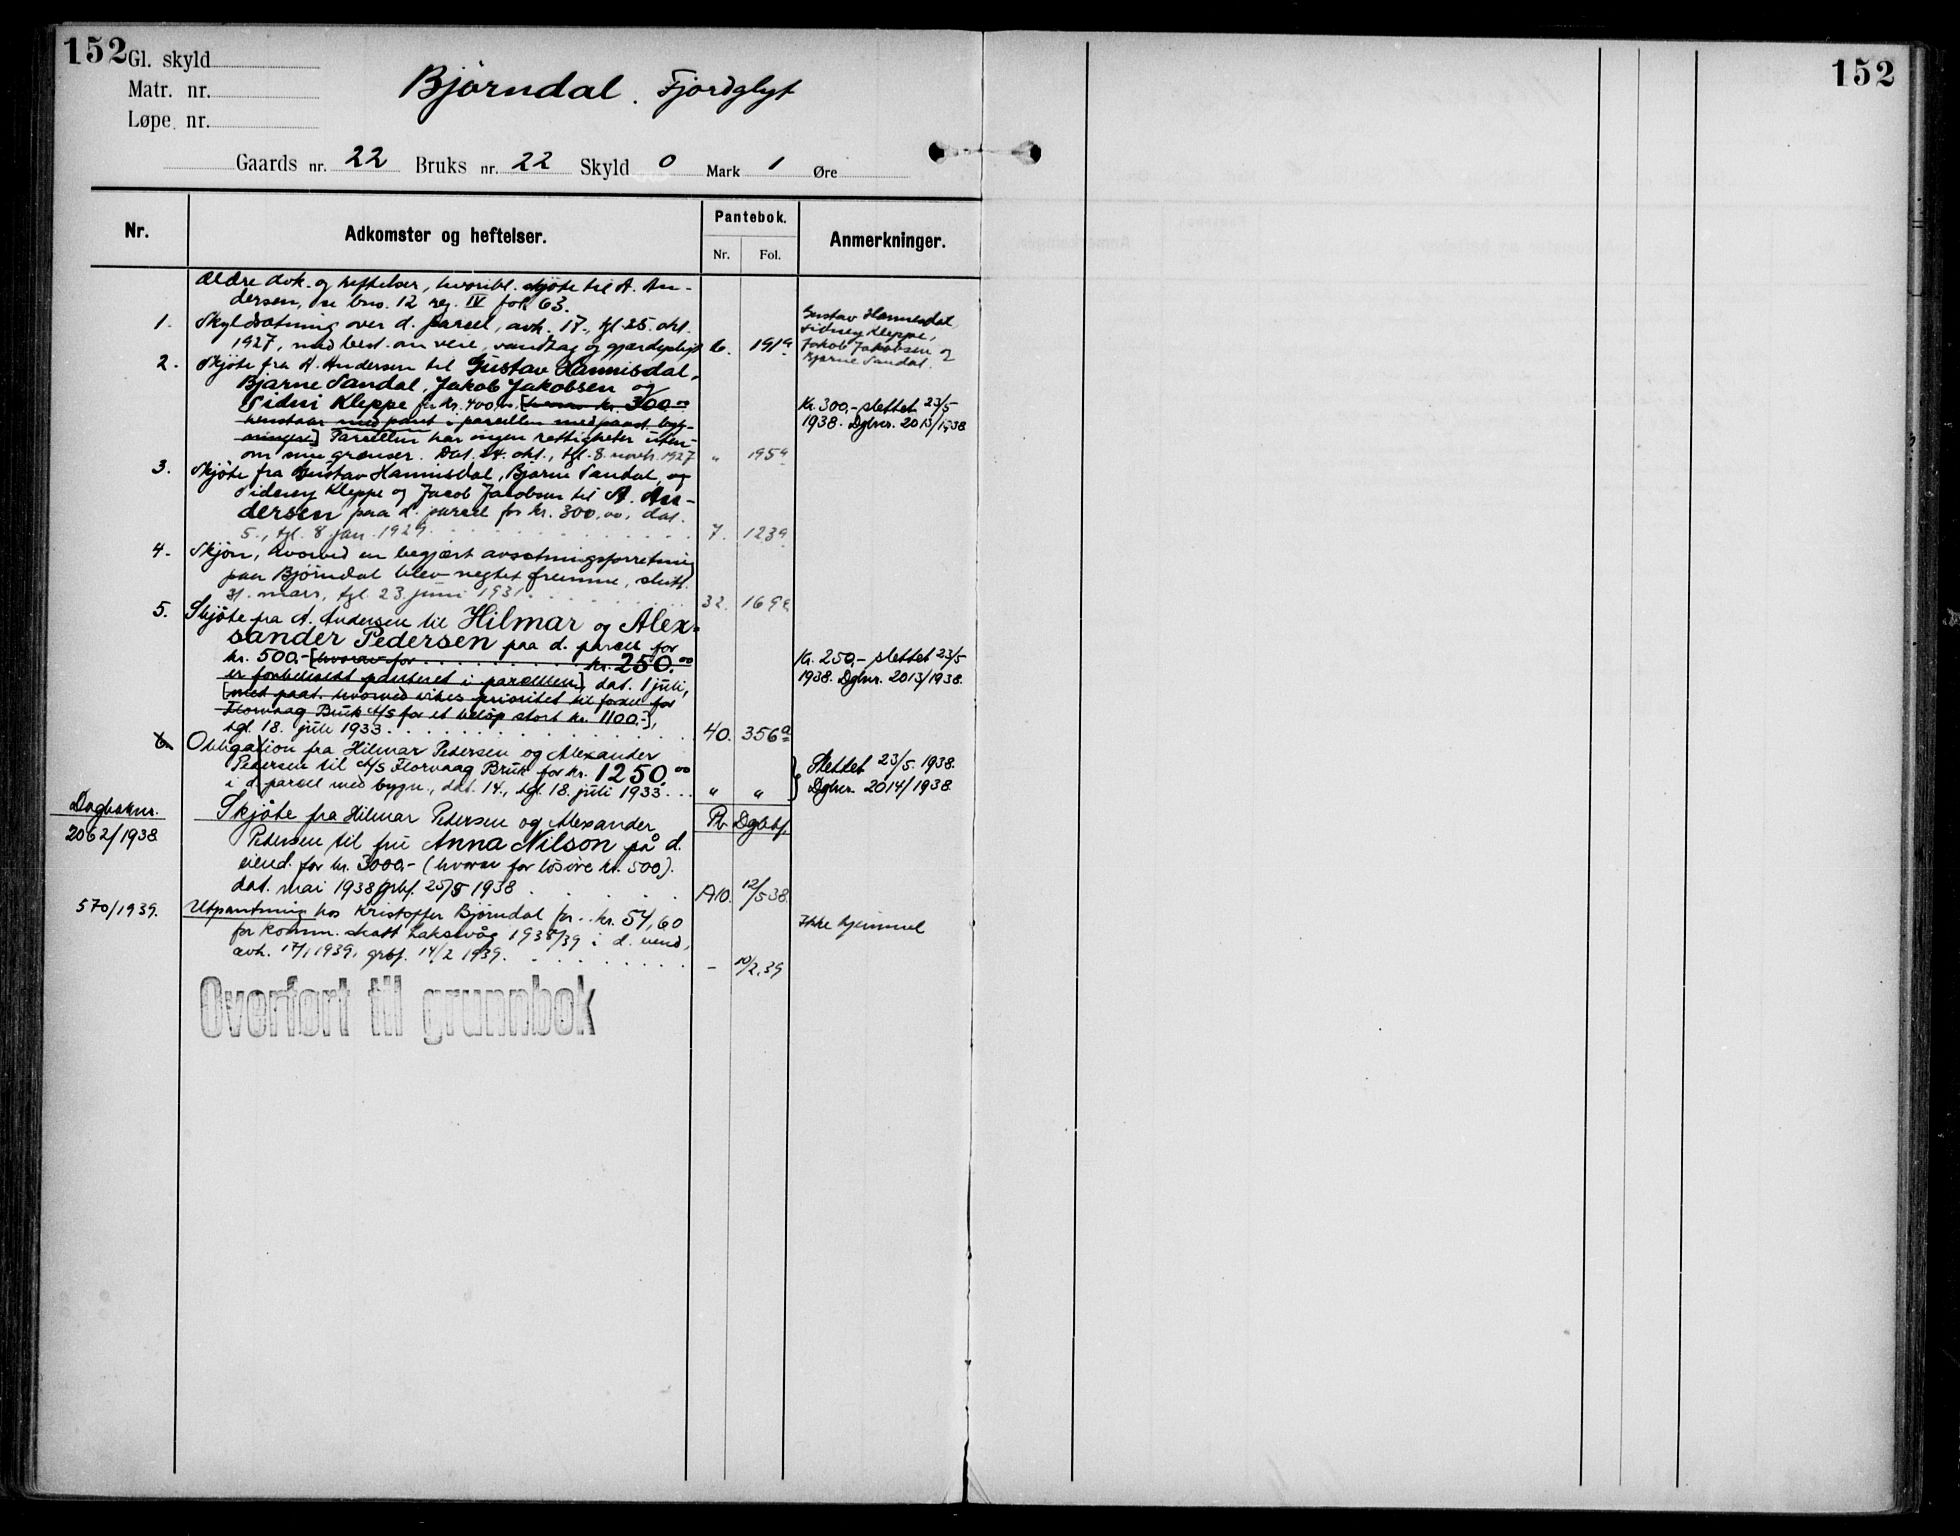 152
152
Gl. skyld
Matr. nr.
Løpe nr.
Bjørndal. Fjordglyt
Gaards nr. 22 Bruks nr. 22 Skyld 0 Mark 1 Øre
Nr.
Adkomster og heftelser.
Pantebok.
Nr. Fol.
Anmerkninger.
Ældre adk. og heftelser, hvoribl. skjøte til A. An-
dersen, se bns. 12 reg. IV fol 63.
1. Skyldsætning over d. parcel, avh. 17., tgl. 25. okt.
1927, med best. om veie, vandtag og gjærdepligt 6. 191a
Gustav Hannisdal,
Sidney Kleppe,
Jakob Jakobsen og
Bjarne Sandal.
2. Skjøte fra A. Andersen til Gustav Hannisdal,
Bjarne Sandal, Jakob Jakobsen og
Sidni Kleppe for kr. 400,00 [hvorav kr. 300.00
henstaar med pant i parcellen med paast. byg-
ninger] Parcellen har ingen rettigheter uten-
om sine grænser. Dat. 24. okt., tgl. 8. novb. 1927 " 195a
Kr. 300,- slettet 23/5
1938. Dgbnr. 2013/1938
3. Skjøte fra Gustav Hannisdal, Bjarne Sandal, og
Sidney Kleppe og Jacob Jacobsen til A. An-
dersen paa d. parcel for kr. 300,00, dat.
5., tgl. 8 jan. 1929. 7. 123a
4. Skjøn, hvorved en begjært avsetningsforretning
paa Bjørndal blev negtet fremme, slutt.
31. mars, tgl. 23. juni 1931. 32. 169a
5. Skjøte fra A. Andersen til Hilmar og Alex-
sander Pedersen paa d. parcell for
kr. 500.- [hvorav for kr. 250.00
er forbeholdt panteret i parcellen] dat. 1 juli,
[med paat. hvorved vikes prioritet til fordel for
Florvaag Bruk A/S for et beløp stort kr. 1100.-],
tgl. 18. juli 1933. 40. 356a
Kr. 250,- slettet 23/5
1938. Dgbnr. 2013/1938.
6. Obligation fra Hilmar Pedersen og Alexander
Pedersen til A/S Florvaag Bruk for kr. 1250.00
i d. parcell med bygn., dat. 14., tgl. 18. juli 1933. " "
Slettet 23/5. 1938.
Dgbnr. 2014/1938
Dagboknr.
2062/1938
Skjøte fra Hilmar Pedersen og Alexander Pb Dgbf.
Pedersen til fru Anna Nilson på d.
eiend. for kr. 3000,- (hvorav for løsøre kr. 500).
dat. mai 1938 grbf. 25/5 1938 A10. 12/5 38.
570/1939. Utpantning hos Kristoffer Bjørndal for kr. 54,60
for komm. skatt Laksevåg 1938/39 i d. eiend,
avh. 17/1 1939, grbf. 14/2 1939. - 10/2.39
Ikke hjemmel
Overført til grunnbok